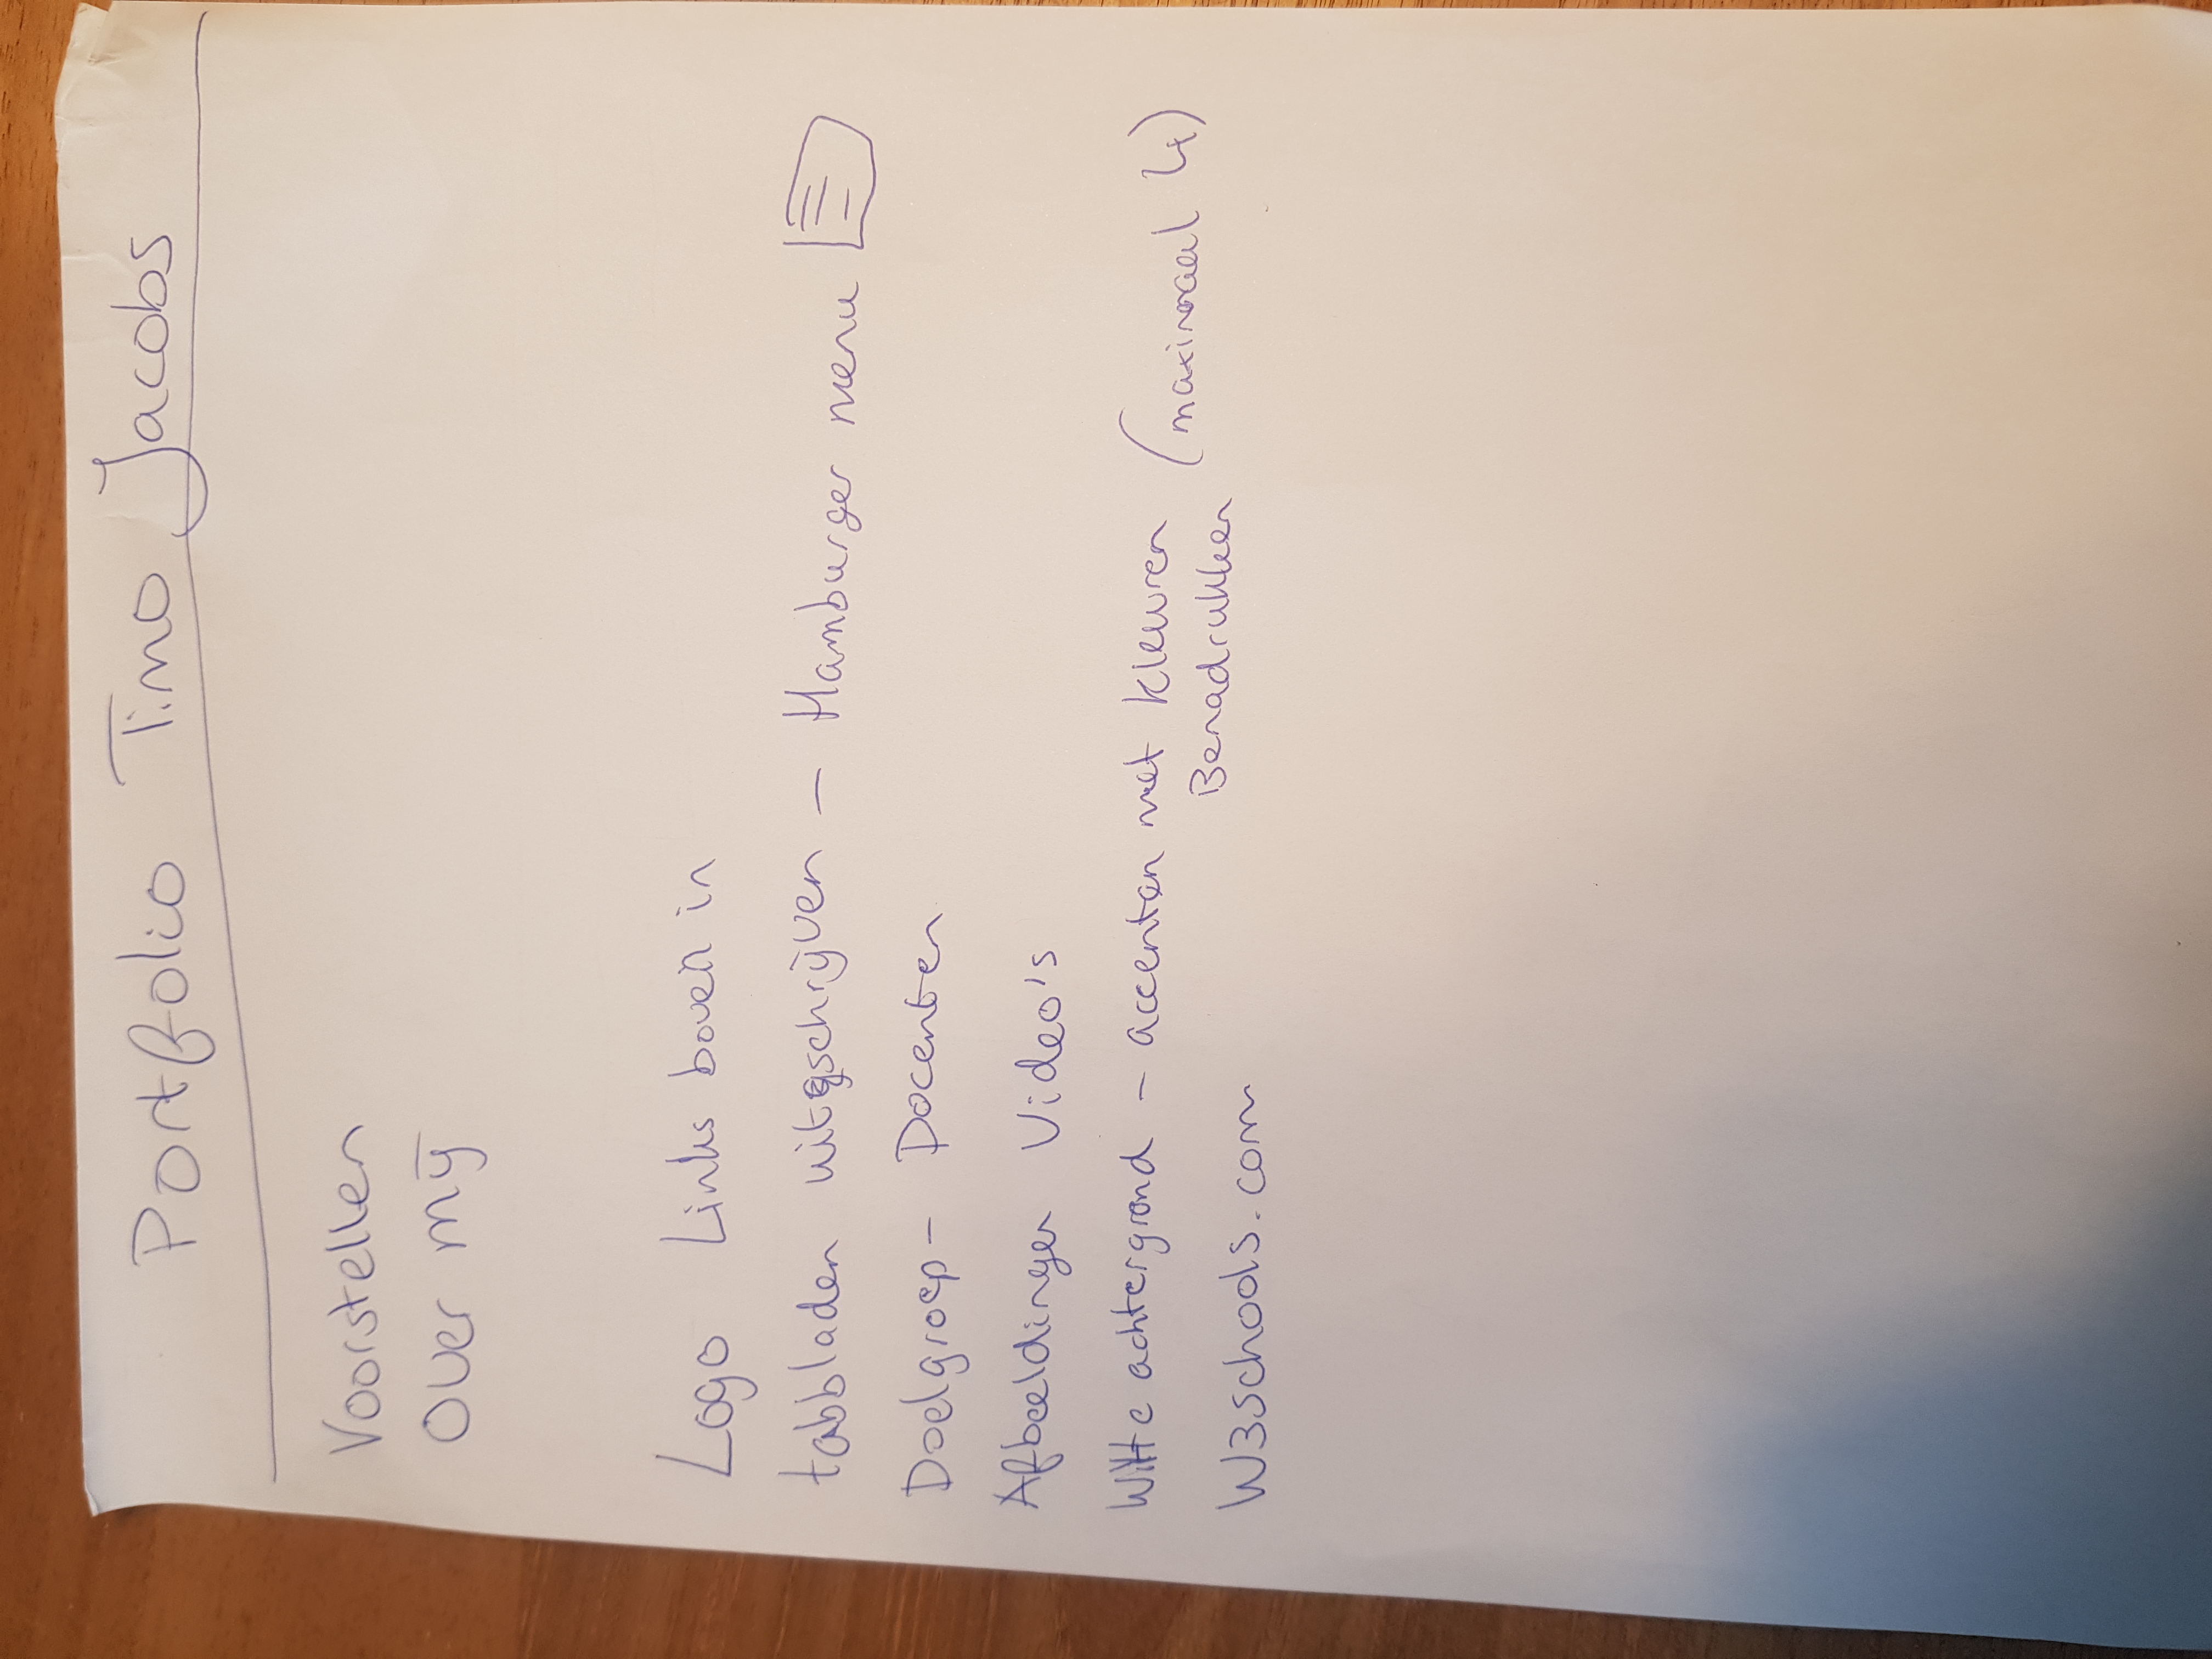 Portfolio Timo Jacobs
Voorstellen
Over mij
Logo Links boven in
tabbladen uitgschrijven - Hamburger menu
Doelgroep - Docenten
Afbeeldingen Video's
Witte achtergrond - accenten met kleuren (maximaal 4)
Benadrukken
W3schools.com